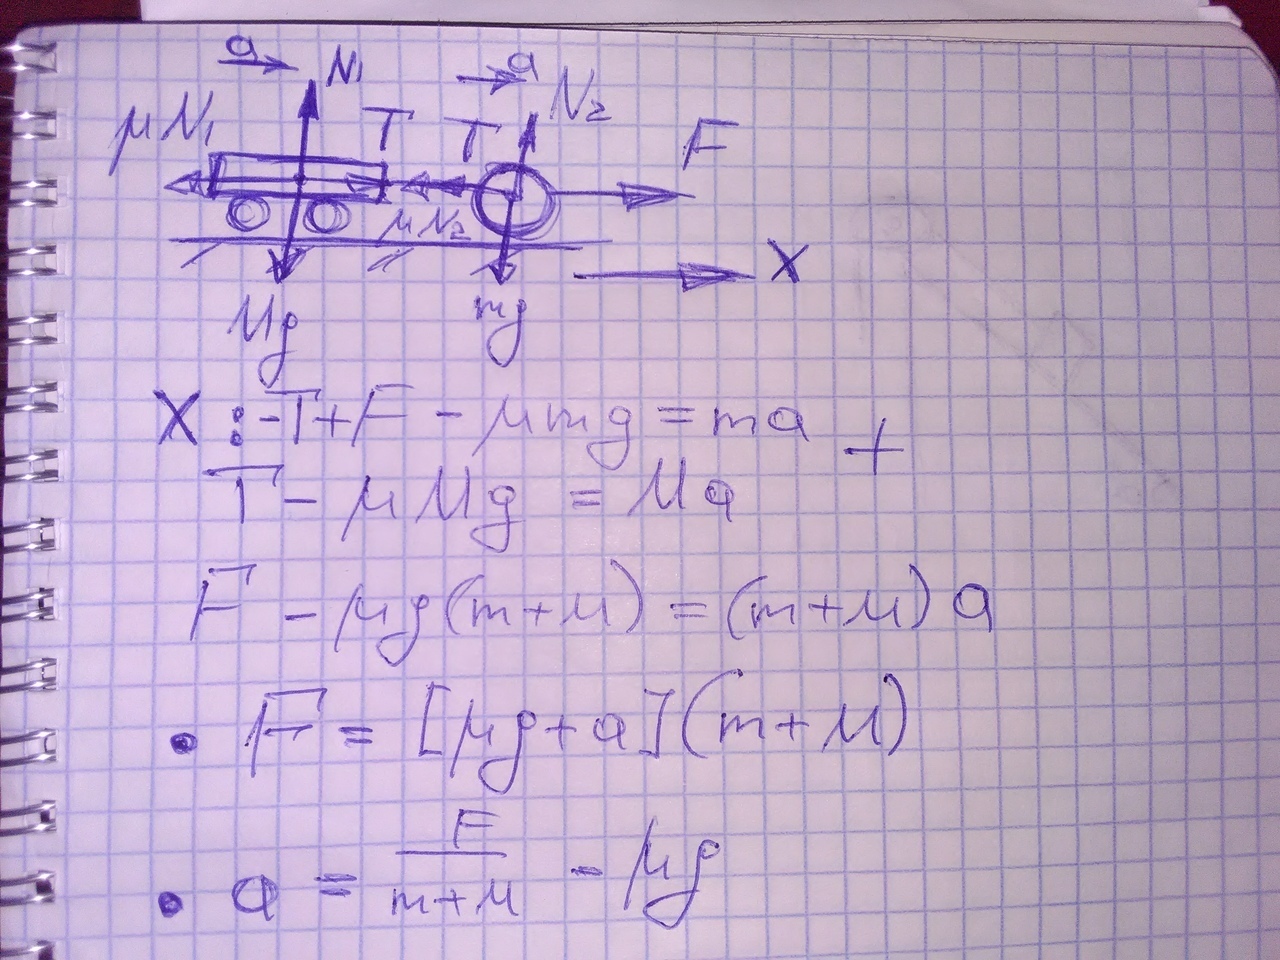 a N₁ a N₂
μN₁ T T F
μN₂
X
Mg mg
X: -T+F - μmg = ma +
T - μMg = Ma
F - μg(m+M) = (m+M)a
• F = [μg+a](m+M)
• a = F/(m+M) - μg